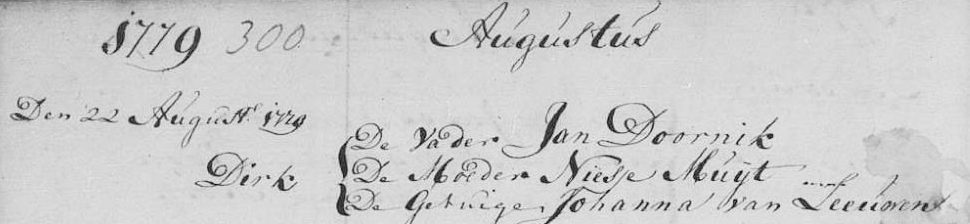 1779 300 Augustus
Den 22 Augustˢ 1779
De Vader Jan Doornik
Dirk De Moeder Niesje Muijt
De Getuige Johanna van Leeuwen